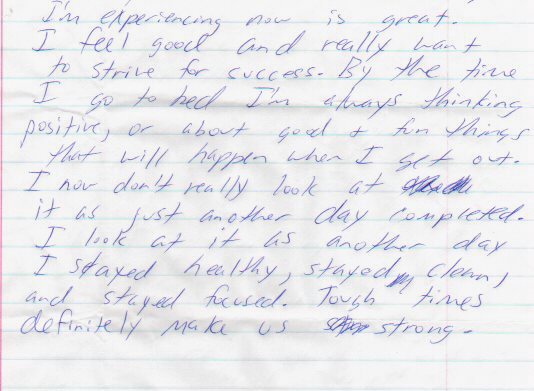 I'm experiencing now is great.
I feel good and really want
to strive for success. By the time
I go to bed I'm always thinking
positive, or about good + fun things
that will happen when I get out.
I now don't really look at
it as just another day completed.
I look at it as another day
I stayed healthy, stayed clean,
and stayed focused. Tough times
definitely make us strong.